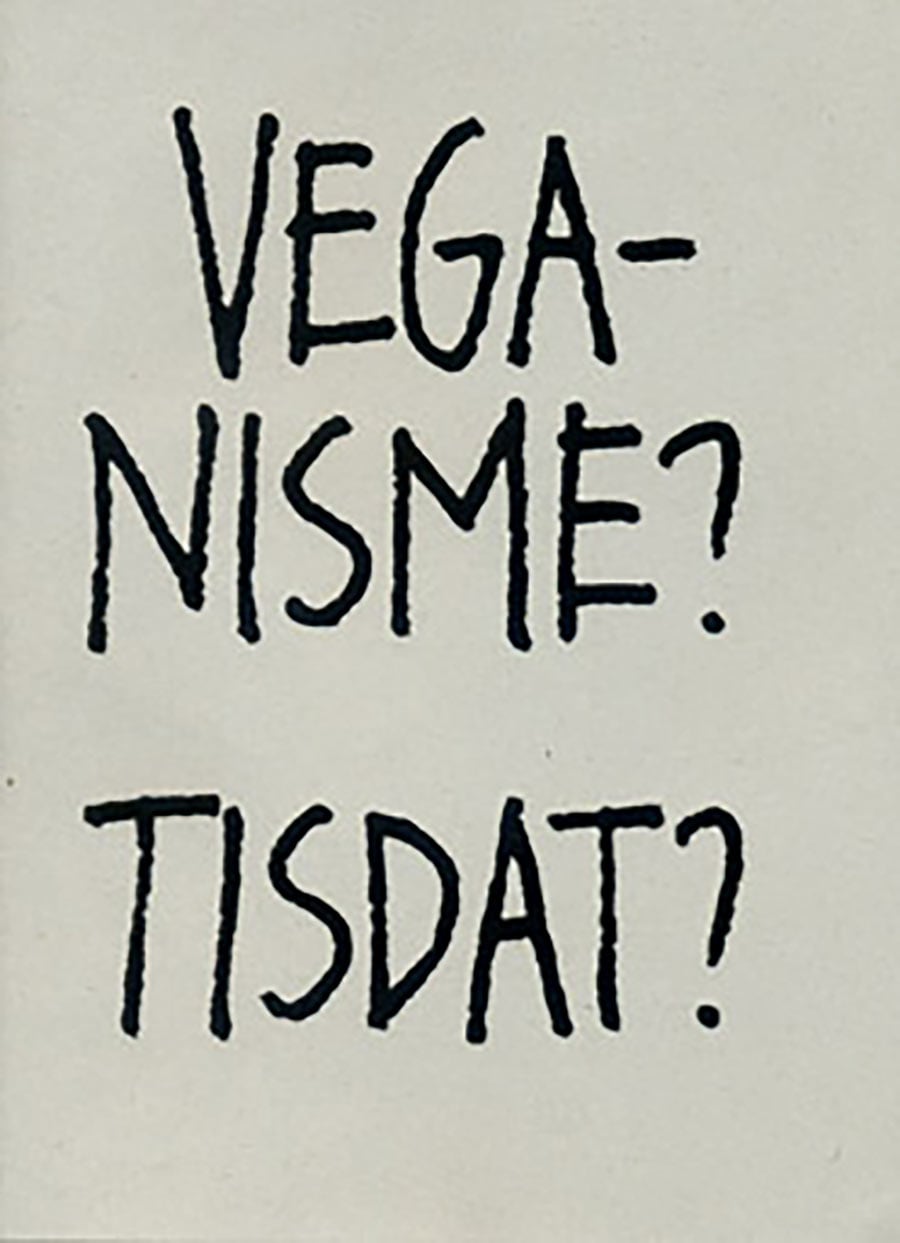 VEGA-
NISME?
TISDAT?